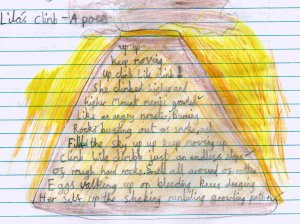 Lila's climb - A poem
up up
Keep moving
Up climb Lila climb
She climbed higher and
higher Mount growl
Like an angry monster, Burning
Rocks busting out as smoke, ash
Filled the sky up up keep moving up
Climb Lila climb just an endless slope
Of rough hard rocks all around
Eggs walking up on bleeding Knees dragging
Her self up the shaking rumbling growling